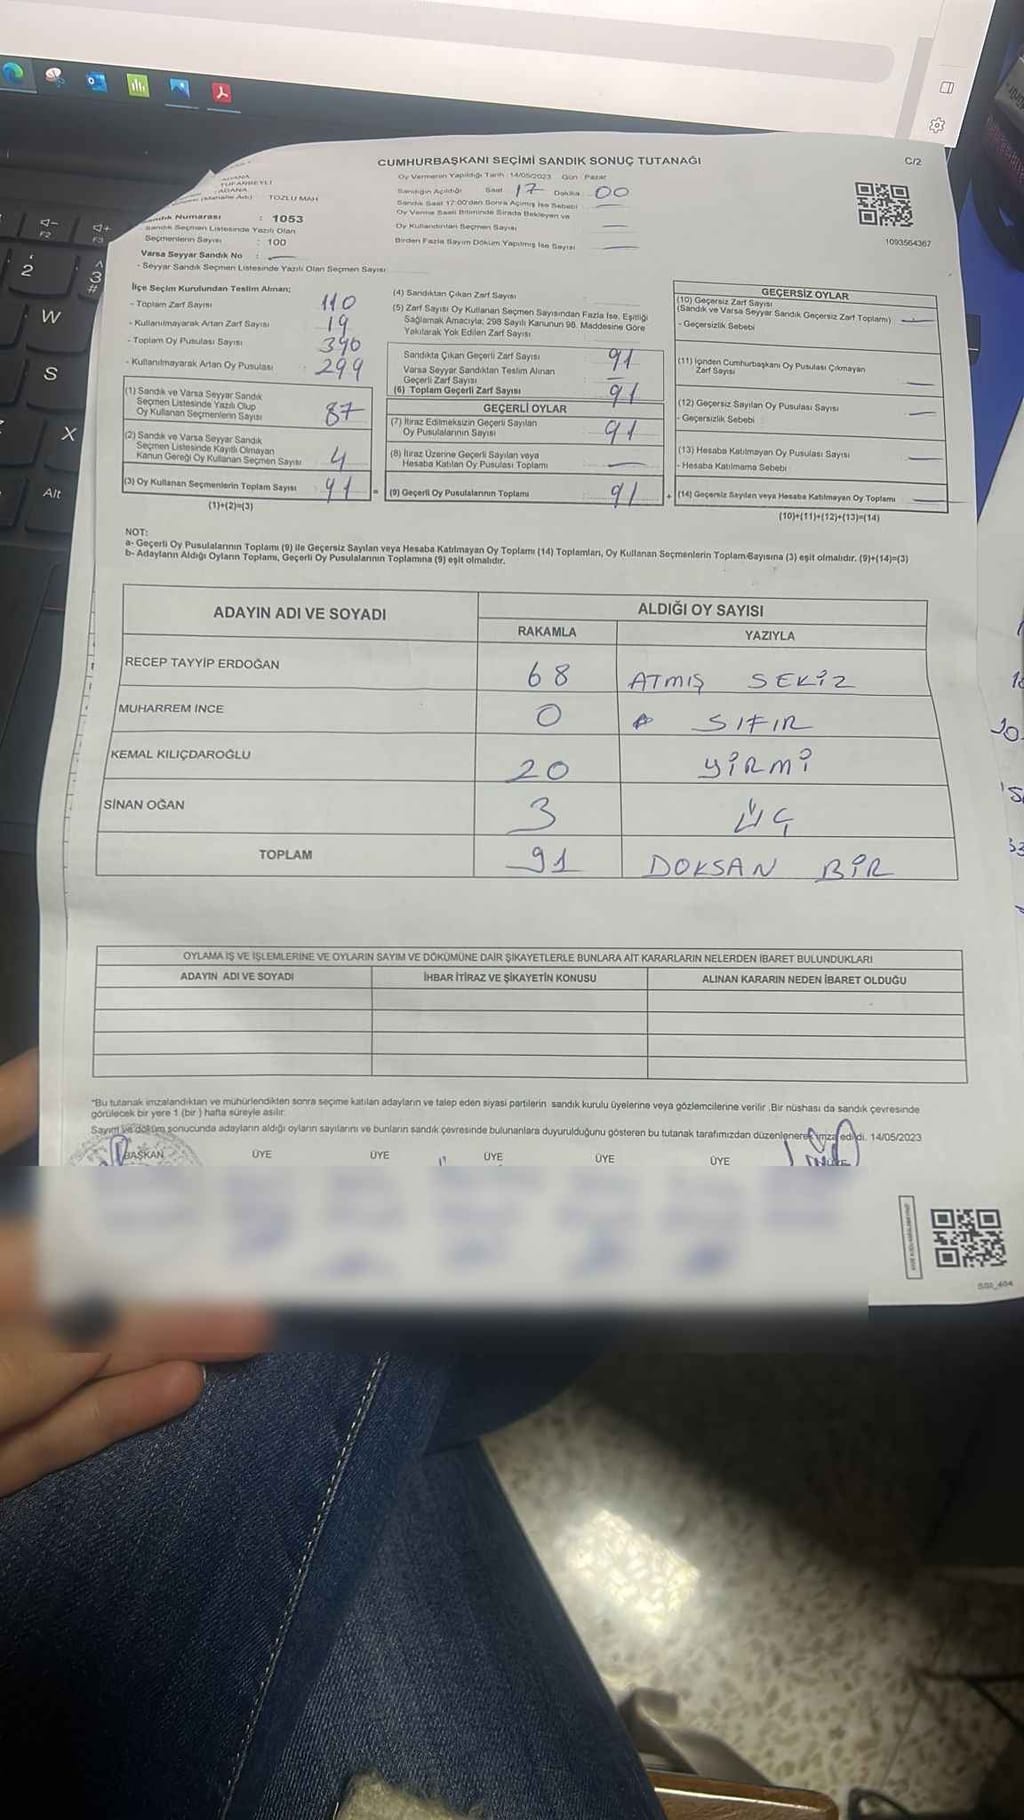 CUMHURBAŞKANI SEÇİMİ SANDIK SONUÇ TUTANAĞI
C/2
Oy Vermenin Yapıldığı Tarih : 14/05/2023 Gün : Pazar
Sandığın Açıldığı Saat : 17 Dakika : 00
Sandık Saat 17:00'den Sonra Açılmış İse Sebebi
Oy Verme Saati Bitiminde Sırada Bekleyen ve
Oy Kullandırılan Seçmen Sayısı
Birden Fazla Sayım Döküm Yapılmış İse Sayısı
1093564367
ADANA
TUFANBEYLİ
ADANA
TOZLU MAH
Numarası : 1053
Sandık Seçmen Listesinde Yazılı Olan
Seçmenlerin Sayısı : 100
Varsa Seyyar Sandık No :
- Seyyar Sandık Seçmen Listesinde Yazılı Olan Seçmen Sayısı:
İlçe Seçim Kurulundan Teslim Alınan;
- Toplam Zarf Sayısı 110
- Kullanılmayarak Artan Zarf Sayısı 19
- Toplam Oy Pusulası Sayısı 390
- Kullanılmayarak Artan Oy Pusulası 299
(1) Sandık ve Varsa Seyyar Sandık
Seçmen Listesinde Yazılı Olup
Oy Kullanan Seçmenlerin Sayısı 87
(2) Sandık ve Varsa Seyyar Sandık
Seçmen Listesinde Kayıtlı Olmayan
Kanun Gereği Oy Kullanan Seçmen Sayısı 4
(3) Oy Kullanan Seçmenlerin Toplam Sayısı 91 =
(1)+(2)=(3)
(4) Sandıktan Çıkan Zarf Sayısı
(5) Zarf Sayısı Oy Kullanan Seçmen Sayısından Fazla İse, Eşitliği
Sağlamak Amacıyla; 298 Sayılı Kanunun 98. Maddesine Göre
Yakılarak Yok Edilen Zarf Sayısı
Sandıkta Çıkan Geçerli Zarf Sayısı 91
Varsa Seyyar Sandıktan Teslim Alınan
Geçerli Zarf Sayısı
(6) Toplam Geçerli Zarf Sayısı 91
GEÇERLİ OYLAR
(7) İtiraz Edilmeksizin Geçerli Sayılan
Oy Pusulalarının Sayısı 91
(8) İtiraz Üzerine Geçerli Sayılan veya
Hesaba Katılan Oy Pusulası Toplamı
(9) Geçerli Oy Pusulalarının Toplamı 91 +
GEÇERSİZ OYLAR
(10) Geçersiz Zarf Sayısı
(Sandık ve Varsa Seyyar Sandık Geçersiz Zarf Toplamı)
- Geçersizlik Sebebi
(11) İçinden Cumhurbaşkanı Oy Pusulası Çıkmayan
Zarf Sayısı
(12) Geçersiz Sayılan Oy Pusulası Sayısı
- Geçersizlik Sebebi
(13) Hesaba Katılmayan Oy Pusulası Sayısı
- Hesaba Katılmama Sebebi
(14) Geçersiz Sayılan veya Hesaba Katılmayan Oy Toplamı
(10)+(11)+(12)+(13)=(14)
NOT:
a- Geçerli Oy Pusulalarının Toplamı (9) ile Geçersiz Sayılan veya Hesaba Katılmayan Oy Toplamı (14) Toplamları, Oy Kullanan Seçmenlerin Toplam Sayısına (3) eşit olmalıdır. (9)+(14)=(3)
b- Adayların Aldığı Oyların Toplamı, Geçerli Oy Pusulalarının Toplamına (9) eşit olmalıdır.
ADAYIN ADI VE SOYADI
ALDIĞI OY SAYISI
RAKAMLA YAZIYLA
RECEP TAYYİP ERDOĞAN 68 ATMIŞ SEKİZ
MUHARREM İNCE 0 SIFIR
KEMAL KILIÇDAROĞLU 20 YİRMİ
SİNAN OĞAN 3 ÜÇ
TOPLAM 91 DOKSAN BİR
OYLAMA İŞ VE İŞLEMLERİNE VE OYLARIN SAYIM VE DÖKÜMÜNE DAİR ŞİKAYETLERLE BUNLARA AİT KARARLARIN NELERDEN İBARET BULUNDUKLARI
ADAYIN ADI VE SOYADI İHBAR İTİRAZ VE ŞİKAYETİN KONUSU ALINAN KARARIN NEDEN İBARET OLDUĞU
*Bu tutanak imzalandıktan ve mühürlendikten sonra seçime katılan adayların ve talep eden siyasi partilerin sandık kurulu üyelerine veya gözlemcilerine verilir .Bir nüshası da sandık çevresinde
görülecek bir yere 1 (bir ) hafta süreyle asılır.
Sayım ve döküm sonucunda adayların aldığı oyların sayılarını ve bunların sandık çevresinde bulunanlara duyurulduğunu gösteren bu tutanak tarafımızdan düzenlenerek imza edildi. 14/05/2023
BAŞKAN ÜYE ÜYE ÜYE ÜYE ÜYE
2
W
S
X
Alt
F2
F3
3
#